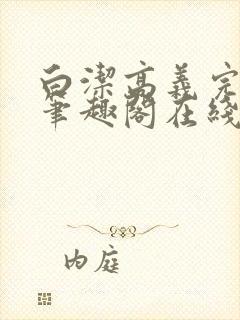 白潔高義完
筆趣閣在綫
内庭